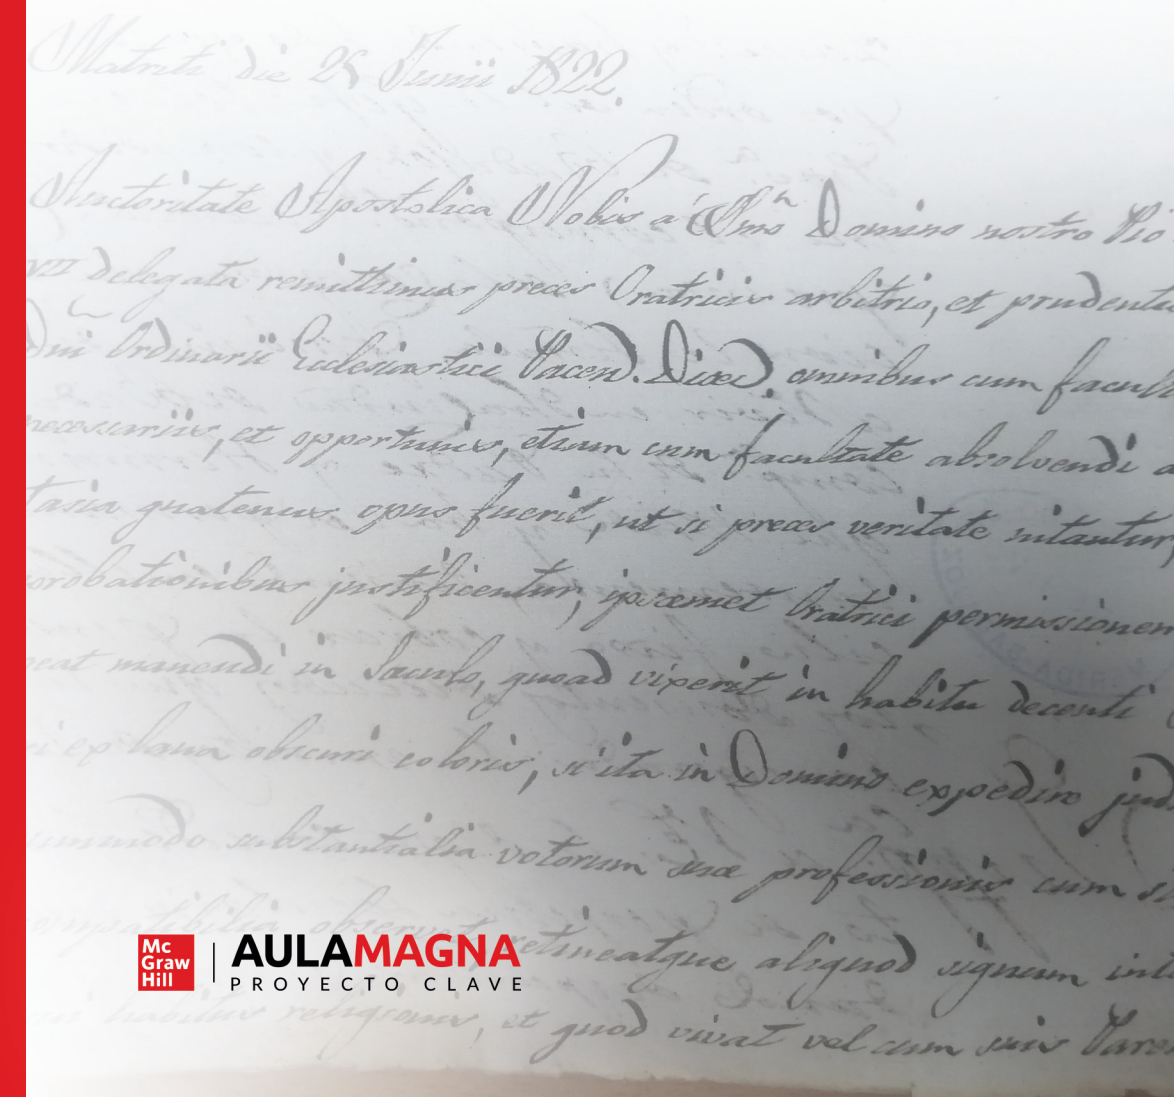 Matriti die 25 Junii 1822.
Auctoritate Apostolica Nobis a Smo Domino nostro Pio
VII delegata remittimus preces Oratricis arbitrio, et prudenti
Dni Ordinarii Ecclesiastici Pacen. Dioec. omnibus cum facult
necessariis, et opportunis, etiam cum facultate absolvendi a
tasia quatenus opus fuerit, ut si preces veritate nitantur,
probationibus justificentur, ipsæmet Oratrici permissionem
manendi in Sæculo, quoad vixerit in habitu decenti
ex lana obscuri coloris, si ita in Domino expedire jud
ummodo substantialia votorum suæ professionis cum s
compatibilia observet, retineatque aliquod signum int
habitus religionis, et quod vivat vel cum suis Paren
Mc
Graw
Hill
AULAMAGNA
PROYECTO CLAVE